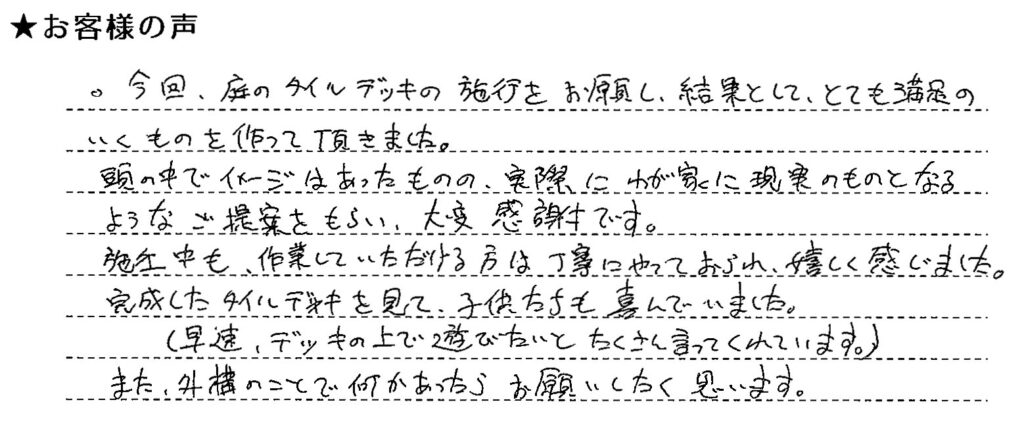 ★お客様の声
。今回、庭のタイルデッキの施行をお願し、結果として、とても満足の
いくものを作って頂きました。
頭の中でイメージはあったものの、実際にわが家に現実のものとなる
ようなご提案をもらい、大変感謝です。
施工中も、作業していただける方は丁寧にやっておられ、嬉しく感じました。
完成したタイルデッキを見て、子供たちも喜んでいました。
(早速、デッキの上で遊びたいとたくさん言ってくれています。)
また、外構のことで何かあったらお願いしたく思います。